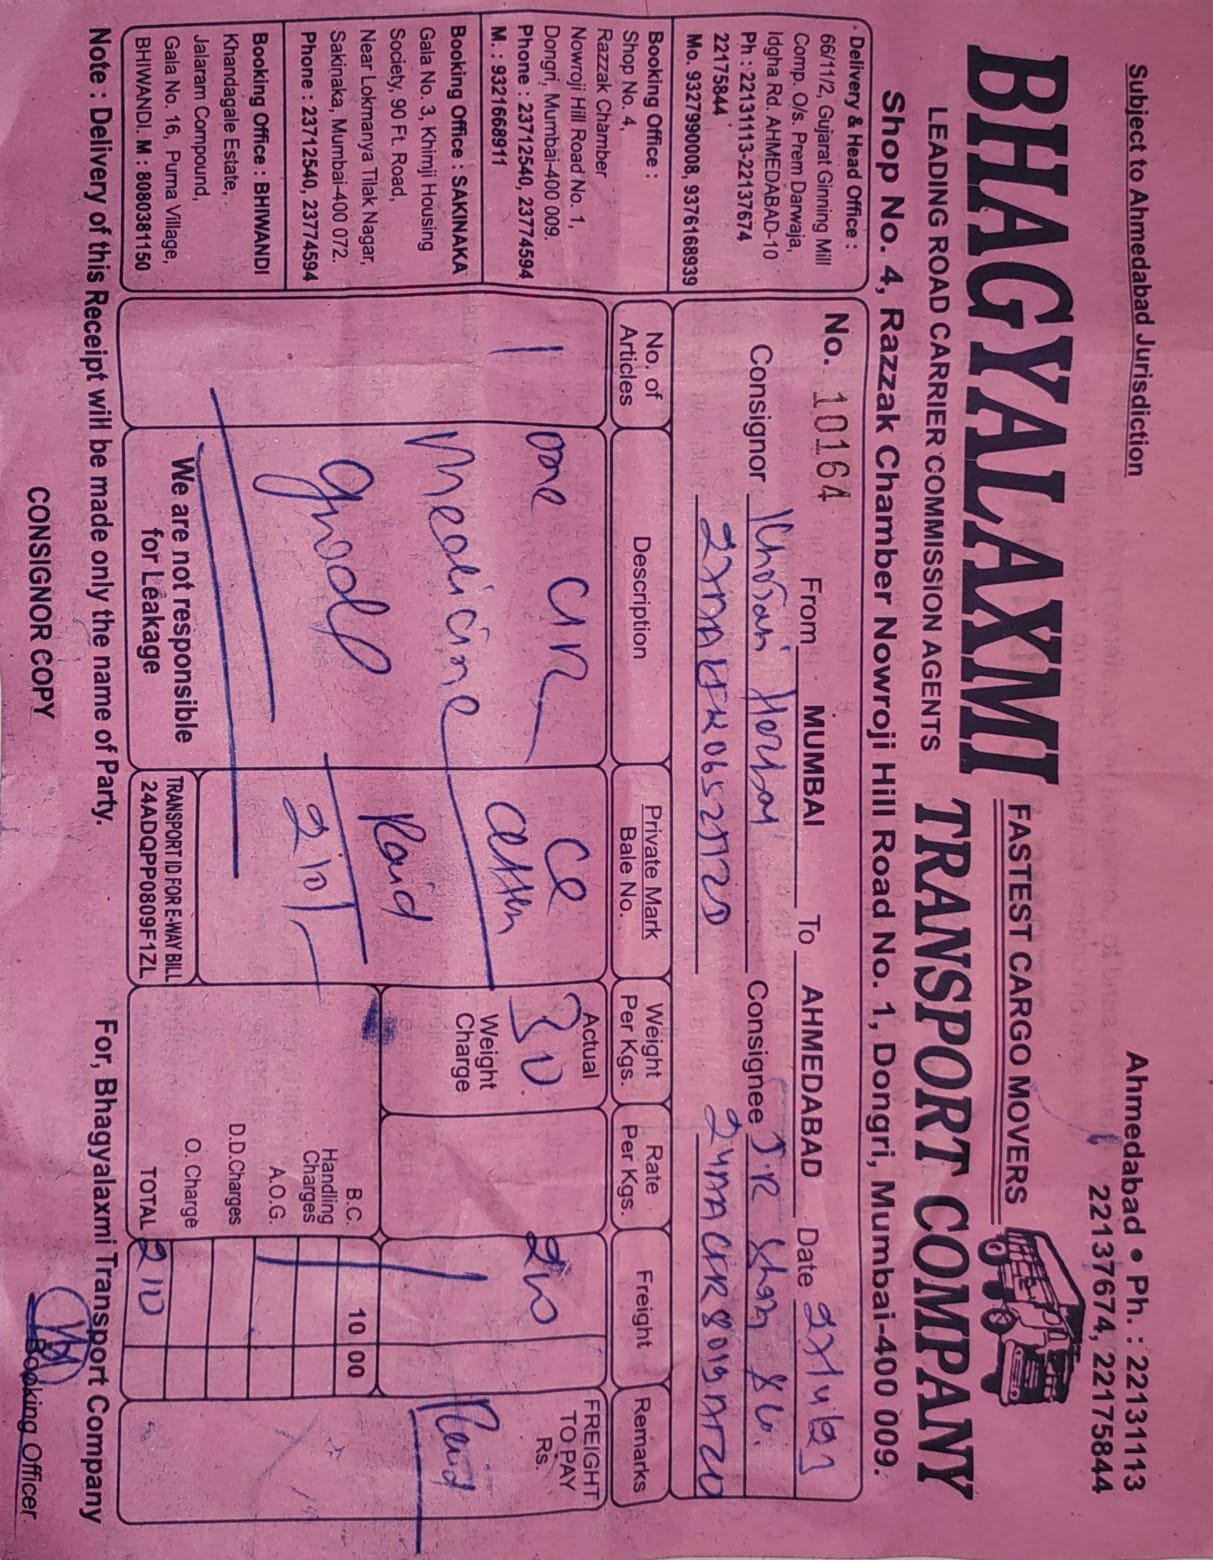 Subject to Ahmedabad Jurisdiction
Ahmedabad • Ph. : 22131113
22137674, 22175844
BHAGYALAXMI
FASTEST CARGO MOVERS
TRANSPORT COMPANY
LEADING ROAD CARRIER COMMISSION AGENTS
Shop No. 4, Razzak Chamber Nowroji Hill Road No. 1, Dongri, Mumbai-400 009.
Delivery & Head Office :
66/11/2, Gujarat Ginning Mill
Comp. O/s. Prem Darwaja,
Idgha Rd. AHMEDABAD-10
Ph : 22131113-22137674
22175844
Mo. 9327990008, 9376168939
Booking Office :
Shop No. 4,
Razzak Chamber
Nowroji Hill Road No. 1,
Dongri, Mumbai-400 009.
Phone : 23712540, 23774594
M. : 9321668911
Booking Office : SAKINAKA
Gala No. 3, Khimji Housing
Society, 90 Ft. Road,
Near Lokmanya Tilak Nagar,
Sakinaka, Mumbai-400 072.
Phone : 23712540, 23774594
Booking Office : BHIWANDI
Khandagale Estate,
Jalaram Compound,
Gala No. 16, Purna Village,
BHIWANDI. M : 8080381150
No. 10164 From MUMBAI To AHMEDABAD Date
Consignor Consignee
No. of Articles
Description
Private Mark Bale No.
Weight Per Kgs.
Rate Per Kgs.
Freight
Remarks
1
one
medicine
Paid
210
Actual
30
Weight Charge
200
FREIGHT TO PAY Rs.
Paid
B.C. 10 00
Handling Charges
A.O.G.
D.D.Charges
O. Charge
TOTAL 210
We are not responsible
for Leakage
TRANSPORT ID FOR E-WAY BILL
24ADQPP0809F1ZL
Note : Delivery of this Receipt will be made only the name of Party.
For, Bhagyalaxmi Transport Company
CONSIGNOR COPY
Booking Officer